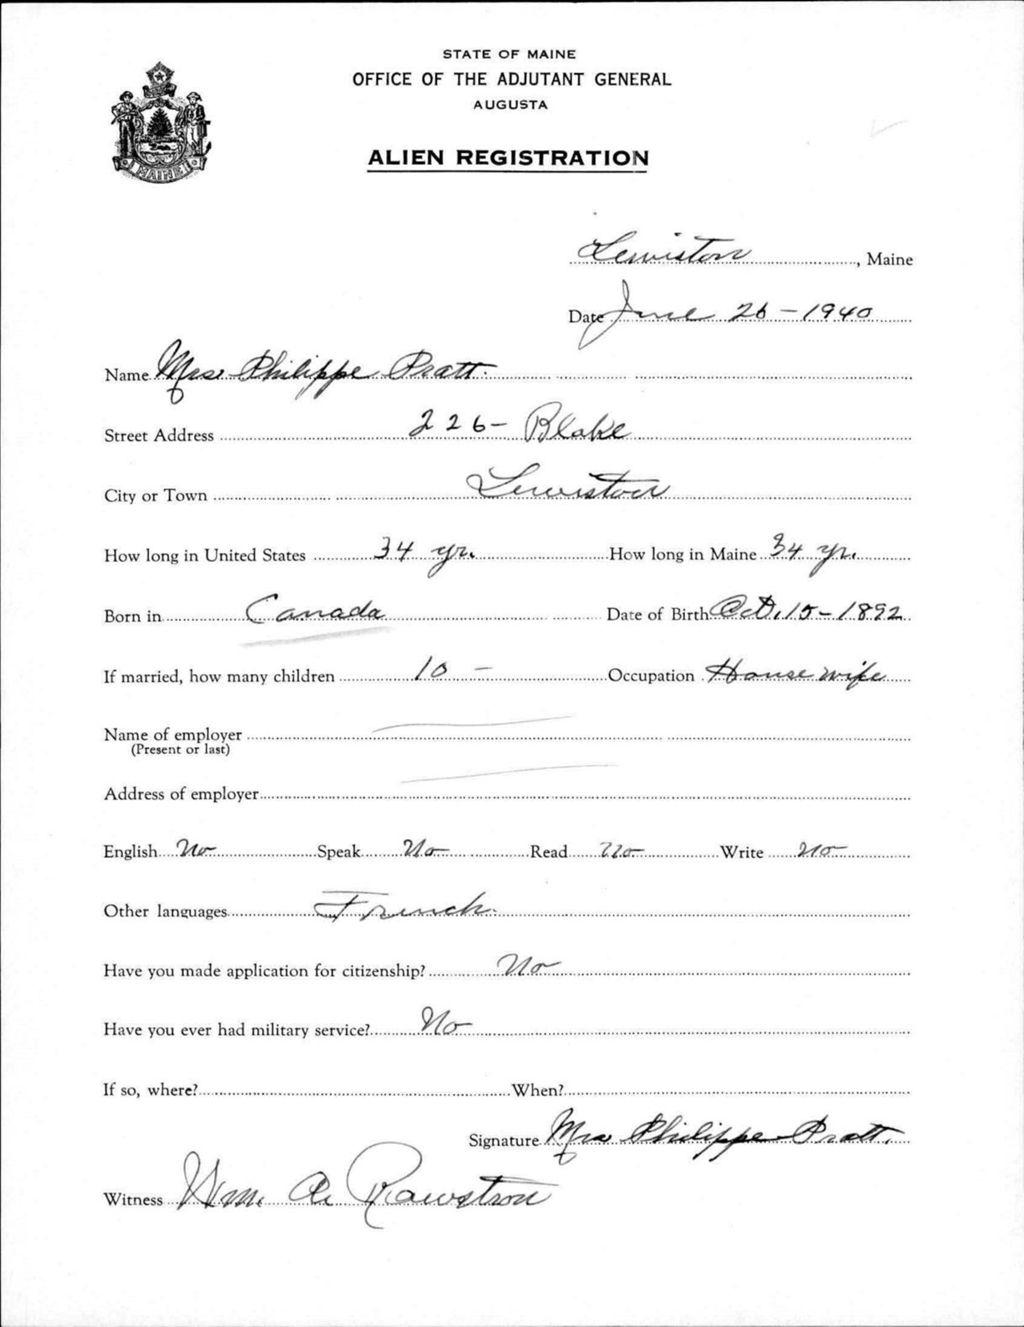 STATE OF MAINE
OFFICE OF THE ADJUTANT GENERAL
AUGUSTA
ALIEN REGISTRATION
MAINE
Lewiston, Maine
Date June 26-1940
Name Mrs. Philippe Pratt.
Street Address 226- Blake
City or Town Lewiston
How long in United States 34 yr. How long in Maine 34 yr.
Born in Canada Date of Birth Oct. 15-1892
If married, how many children 10 - Occupation Housewife
Name of employer
(Present or last)
Address of employer
English No Speak No Read No Write No
Other languages French.
Have you made application for citizenship? No
Have you ever had military service? No
If so, where? When?
Signature Mrs Philippe Pratt.
Witness Wm. A. Rawstron